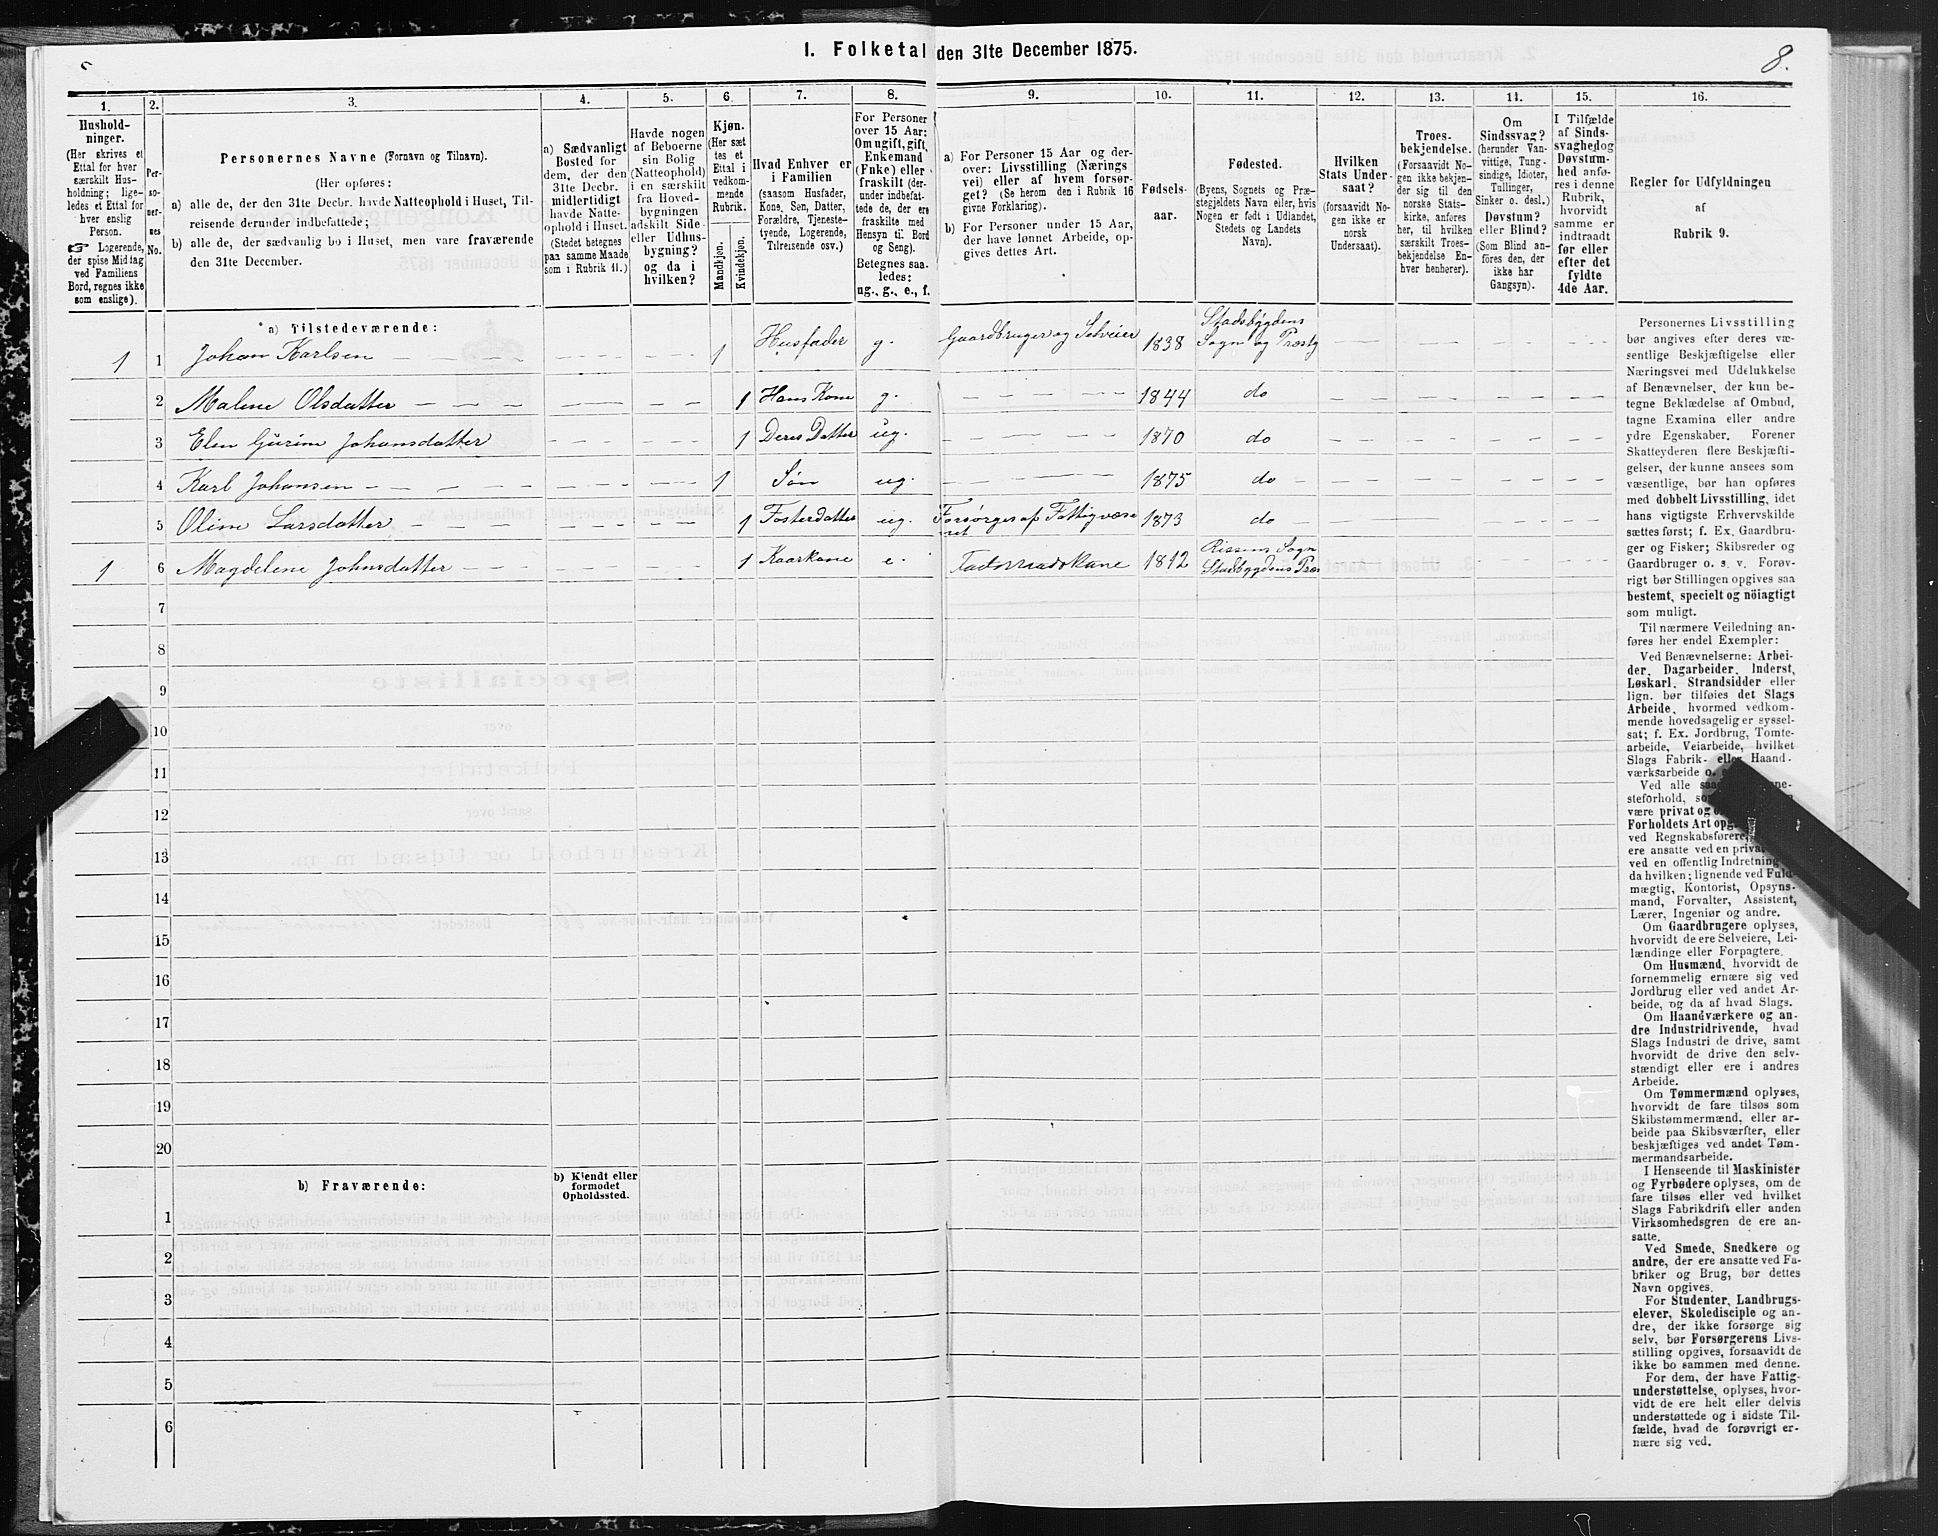 I. Folketal den 31te December 1875.
8.
1. 2. 3. 4. 5. 6. 7. 8. 9. 10. 11. 12. 13. 14. 15. 16.
Hushold-
ninger.
(Her skrives et
Ettal for hver
særskilt Hus-
holdning; lige-
ledes et Ettal for
hver enslig
Person.
☞ Logerende,
der spise Middag
ved Familiens
Bord, regnes ikke
som enslige).
Per-
so-
ner-
nes
No.
Personernes Navne (Fornavn og Tilnavn).
(Her opføres:
a) alle de, der den 31te Decbr. havde Natteophold i Huset, Til-
reisende derunder indbefattede;
b) alle de, der sædvanlig bo i Huset, men vare fraværende
den 31te December.
a) Sædvanligt
Bosted for
dem, der den
31te Decbr.
midlertidigt
havde Natte-
ophold i Huset.
(Stedet betegnes
paa samme Maade
som i Rubrik 11.)
Havde nogen
af Beboerne
sin Bolig
(Natteophold)
i en særskilt
fra Hoved-
bygningen
adskilt Side-
eller Udhus-
bygning?
og da i
hvilken?
Kjøn.
(Her sæt
tes et
Ettal i
vedkom-
mende
Rubrik.
Mandkjøn.
Kvindekjøn.
Hvad Enhver er
i Familien
(saasom Husfader,
Kone, Søn, Datter,
Forældre, Tjeneste-
tyende, Logerende,
Tilreisende osv.)
For Personer
over 15 Aar:
Om ugift, gift,
Enkemand
(Enke) eller
fraskilt (der-
under indbefat-
tede de, der ere
fraskilte med
Hensyn til Bord
og Seng).
Betegnes saa-
ledes:
ug., g., e., f.
a) For Personer 15 Aar og der-
over: Livsstilling (Nærings
vei) eller af hvem forsør-
get? (Se herom den i Rubrik 16
givne Forklaring).
b) For Personer under 15 Aar,
der have lønnet Arbeide, op-
gives dettes Art.
Fødsels-
aar.
Fødested.
(Byens, Sognets og Præ-
stegjeldets Navn eller, hvis
Nogen er født i Udlandet,
Stedets og Landets
Navn).
Hvilken
Stats Under-
saat?
(forsaavidt No-
gen ikke er
norsk
Undersaat).
Troes-
bekjendelse.
(Forsaavidt No-
gen ikke bekjen-
der sig til den
norske Stats-
kirke, anføres
her, til hvilken
særskilt Troes-
bekjendelse En-
hver henhører).
Om
Sindssvag?
(herunder Van-
vittige, Tung-
sindige, Idioter,
Tullinger,
Sinker o. desl.)
Døvstum?
eller Blind?
(Som Blind an-
føres den, der
ikke har
Gangsyn).
I Tilfælde
af Sinds-
svaghed og
Døvstum-
hed anfø-
res i denne
Rubrik,
hvorvidt
samme er
indtraadt
før eller
efter det
fyldte
4de Aar.
Regler for Udfyldningen
af
Rubrik 9.
a) Tilstedeværende:
1 1 Johan Karlsen 1 Husfader g. Gaardbruger og Selveier 1838 Stadsbygdens
Sogn og Præstg
2 Malene Olsdatter 1 Hans Kone g. 1844 do
3 Elen Gurine Johansdatter 1 Deres Datter ug. 1870 do
4 Karl Johansen 1 Søn ug. 1875 do
5 Oline Larsdatter 1 Fosterdatter ug. Forsørges af Fattigvæse
net 1873 do
1 6 Magdelene Johnsdatter 1 Kaarkone e. 1812 Rissens Sogn
Stadsbygdens Præs
7
8
9
10
11
12
13
14
15
16
17
18
19
20
b) Fraværende:
b) Kjendt eller
formodet
Opholdssted.
1
2
3
4
5
6
Personernes Livsstilling
bør angives efter deres væ-
sentlige Beskjæftigelse eller
Næringsvei med Udelukkelse
af Benævnelser, der kun be-
tegne Beklædelse af Ombud,
tagne Examina eller andre
ydre Egenskaber. Forener
Skatteyderen flere Beskjæfti-
gelser, der kunne ansees som
væsentlige, bør han opføres
med dobbelt Livsstilling, idet
hans vigtigste Erhvervskilde
sættes først; f. Ex. Gaardbru-
ger og Fisker; Skibsreder og
Gaardbruger o. s. v. Forøv-
rigt bør Stillingen opgives saa
bestemt, specielt og nöiagtigt
som muligt.
Til nærmere Veiledning an-
føres her endel Exempler:
Ved Benævnelserne: Arbei-
der, Dagarbeider, Inderst,
Løskarl, Strandsidder eller
lign. bør tilføies det Slags
Arbeide, hvormed vedkom-
mende hovedsagelig er syssel-
sat; f. Ex. Jordbrug, Tomte-
arbeide, Veiarbeide, hvilket
Slags Fabrik- eller Haand-
værksarbeide o.
Ved alle
steforhold,
være privat og
Forholdets Art
ved Regnskabsførere,
ere ansatte ved en privat
ved en offentlig Indretning
da hvilken; lignende ved Fuld-
mægtig, Kontorist, Opsyns-
mand, Forvalter, Assistent,
Lærer, Ingeniør og andre.
Om Gaardbrugere oplyses,
hvorvidt de ere Selveiere, Lei-
lændinge eller Forpagtere.
Om Husmænd, hvorvidt de
fornemmelig ernære sig ved
Jordbrug eller ved andet Ar-
beide, og da af hvad Slags.
Om Haandværkere og an-
dre Industridrivende, hvad
Slags Industri de drive, samt
hvorvidt de drive den selv-
stændigt eller ere i andres
Arbeide.
Om Tømmermænd oplyses,
hvorvidt de fare tilsøs som
Skibstømmermænd, eller ar-
beide paa Skibsværfter, eller
beskjæftiges ved andet Tøm-
mermandsarbeide.
I Henseende til Maskinister
og Fyrbødere oplyses, om de
fare tilsøs eller ved hvilket
Slags Fabrikdrift eller anden
Virksomhedsgren de ere an-
satte.
Ved Smede, Snedkere og
andre, der ere ansatte ved Fa-
briker og Brug, bør dettes
Navn opgives.
For Studenter, Landbrugs-
elever, Skoledisciple og an-
dre, der ikke forsørge sig
selv, bør Forsørgerens Livs-
stilling opgives, forsaavidt de
ikke bo sammen med denne.
For dem, der have Fattig-
understøttelse, oplyses, hvor-
vidt de ere helt eller delvis
understøttede og i sidste Til-
fælde, hvad de forøvrigt er-
nære sig ved.